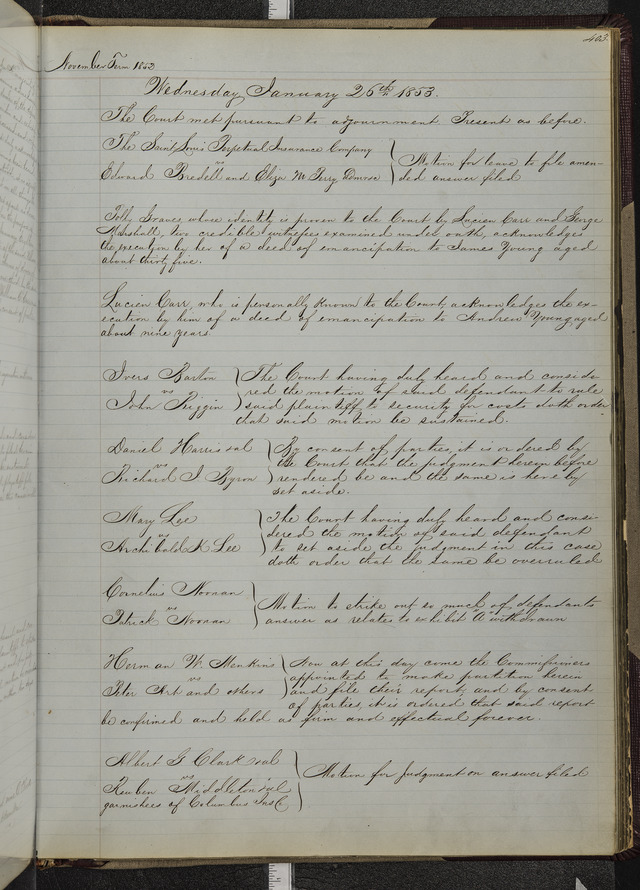 403
November Term 1852
Wednesday January 26th 1853.
The Court met pursuant to adjournment Present as before.
The Saint Louis Perpetual Insurance Company
vs
Edward Bredell and Eliza M Perry Admrse
Motion for leave to file amen-
ded answer filed
Polly Graves whose identity is proven to the Court by Lucien Carr and George
Marshall, two credible witnesses examined under oath, acknowledges
the execution by her of a deed of emancipation to James Young aged
about thirty five.
Lucien Carr, who is personally known to the Court, acknowledges the ex-
ecution by him of a deed of emancipation to Andrew Young aged
about nine years
Ivers Barton
vs
John Riggin
The Court having duly heard and conside-
red the motion of said defendant to rule
said plaintiff to security for costs doth order
that said motion be sustained.
Daniel Harris et al
vs
Richard I Byron
By consent of parties, it is ordered by
the Court that the judgment herein before
rendered be and the same is hereby
set aside.
Mary Lee
vs
Archibald K Lee
The Court having duly heard and consi-
dered the motion of said defendant
to set aside the judgment in this case
doth order that the same be overruled
Cornelius Noonan
vs
Patrick Noonan
Motion to strike out so much of defendants
answer as relates to exhibit A withdrawn
Herman W. Menkins
vs
Peter Art and others
Now at this day come the Commissioners
appointed to make partition herein
and file their report, and by consent
of parties, it is ordered that said report
be confirmed and held as firm and effectual forever.
Albert G Clark et al
vs
Reuben Middleton et al
garnishees of Columbus Ins Co
Motion for Judgment on answer filed